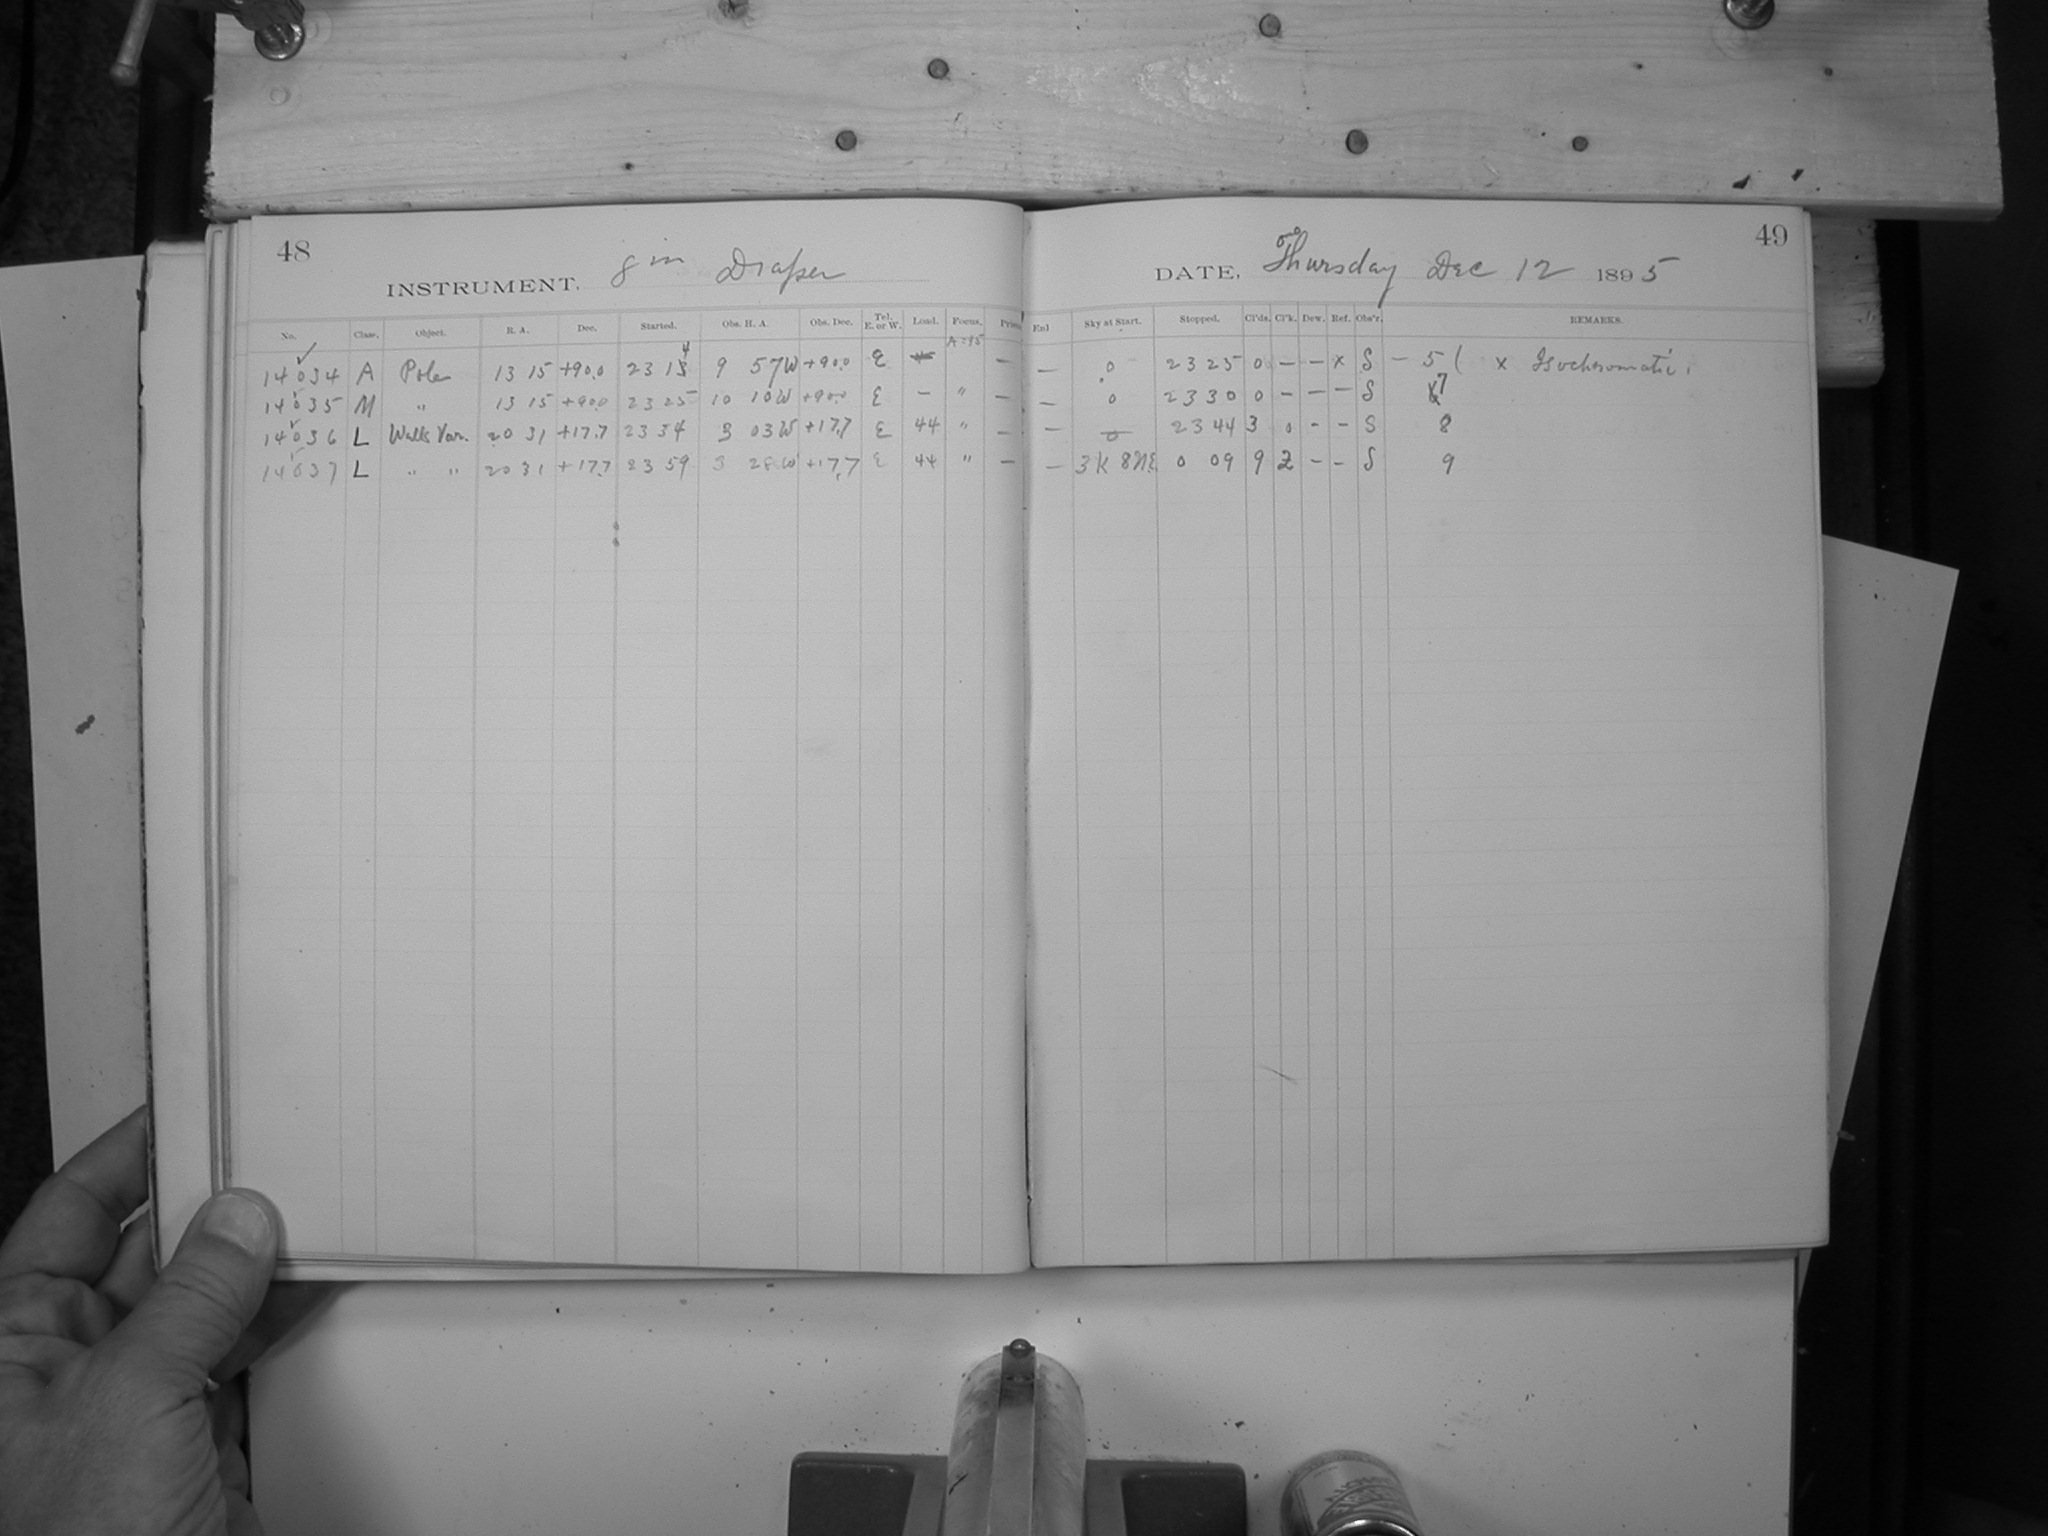 48
INSTRUMENT. 8 in Draper
No. Class. Object. R. A. Dec. Started. Obs. H. A. Obs. Dec. Tel. E. or W. Load. Focus.
A=95
14034 A Pole 13 15 +90.0 23 14 9 57W +90.0 E —
14035 M " 13 15 +90.0 23 25 10 10W +90.0 E - " —
14036 L Wells Var. 20 31 +17.7 23 34 3 03W +17.7 E 44 " —
14037 L " " 20 31 +17.7 23 59 3 28W +17.7 E 44 " —
49
DATE, Thursday Dec 12 1895
Sky at Start. Stopped. Cl'ds. Cl'k. Dew. Ref. Obs'r. REMARKS.
— 0 23 25 0 — — x S — 5 ( x Isochromatic.
— 0 23 30 0 - — — S 7
— 0 23 44 3 0 - - S 8
— 3K 8NE 0 09 9 2 - - S 9